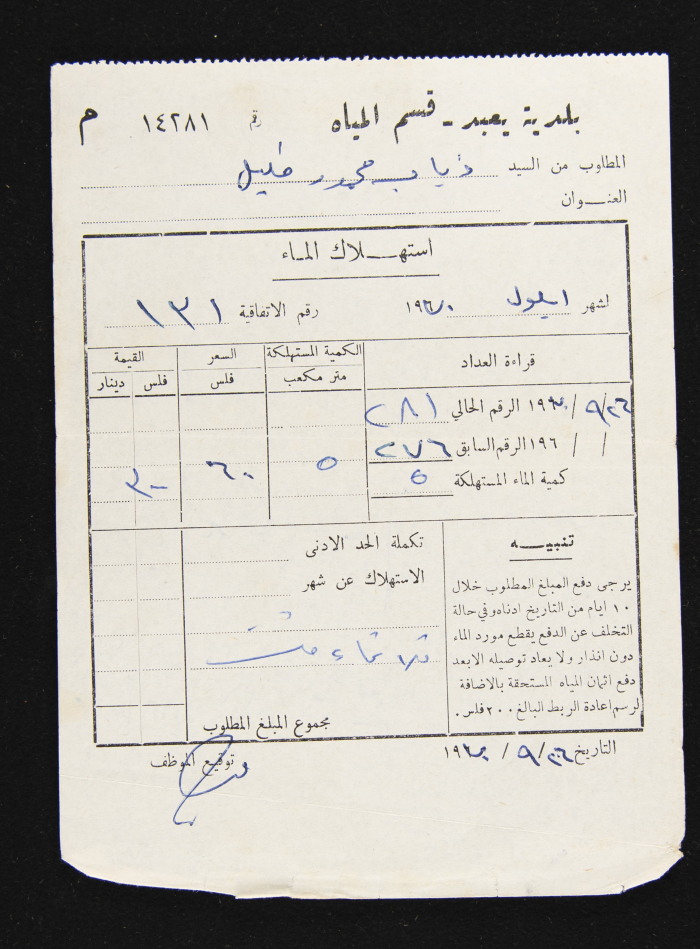 بلدية يعبد - قسم المياه رقم ١٤٢٨١ م
المطلوب من السيد ذياب محمود خليل
العنـــوان
استهــلاك المـاء
لشهر ايلول ١٩٦ رقم الاتفاقية ١٣١
قراءة العداد الكمية المستهلكة السعر القيمة
متر مكعب فلس فلس دينار
٩/٢٦ / ١٩٦ الرقم الحالي ٢٨١
/ / ١٩٦ الرقم السابق ٢٧٦
كمية الماء المستهلكة ٥ ٥ ٦٠ ٣٠٠
تنبيـــه
يرجى دفع المبلغ المطلوب خلال
١٠ ايام من التاريخ ادناه وفي حالة
التخلف عن الدفع يقطع مورد الماء
دون انذار ولا يعاد توصيله الابعد
دفع اثمان المياه المستحقة بالاضافة
لرسم اعادة الربط البالغ ٢٠٠ فلس.
تكملة الحد الادنى
الاستهلاك عن شهر
مجموع المبلغ المطلوب
التاريخ ٢٦/ ٩ / ١٩٦
توقيع الموظف